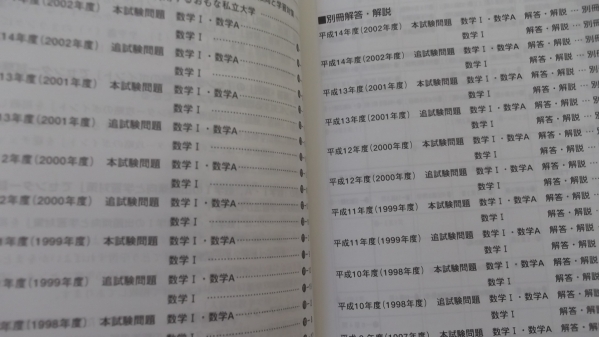 おもな私立大学
14年度(2002年度) 本試験問題 数学Ⅰ・数学A
数学Ⅰ
14年度(2002年度) 追試験問題 数学Ⅰ・数学A
数学Ⅰ
13年度(2001年度) 本試験問題 数学Ⅰ・数学A
数学Ⅰ
13年度(2001年度) 追試験問題 数学Ⅰ・数学A
数学Ⅰ
12年度(2000年度) 本試験問題 数学Ⅰ・数学A
数学Ⅰ
2年度(2000年度) 追試験問題 数学Ⅰ・数学A
数学Ⅰ
年度(1999年度) 本試験問題 数学Ⅰ・数学A
数学Ⅰ
年度(1999年度) 追試験問題 数学Ⅰ・数学A
数学Ⅰ
年度(1998年度) 本試験問題 数学Ⅰ・数学A
■別冊解答・解説
平成14年度(2002年度) 本試験問題 数学Ⅰ・数学A 解答・解説 … 別冊
数学Ⅰ 解答・解説 … 別冊
平成14年度(2002年度) 追試験問題 数学Ⅰ・数学A 解答・解説 … 別冊
数学Ⅰ 解答・解説 … 別冊
平成13年度(2001年度) 本試験問題 数学Ⅰ・数学A 解答・解説 … 別冊
数学Ⅰ 解答・解説 … 別冊
平成13年度(2001年度) 追試験問題 数学Ⅰ・数学A 解答・解説 … 別冊
数学Ⅰ 解答・解説 … 別冊
平成12年度(2000年度) 本試験問題 数学Ⅰ・数学A 解答・解説 … 別
数学Ⅰ 解答・解説 …
平成12年度(2000年度) 追試験問題 数学Ⅰ・数学A 解答・解説 …
数学Ⅰ 解答・解説 …
平成11年度(1999年度) 本試験問題 数学Ⅰ・数学A 解答・解説 …
数学Ⅰ 解答・解説
平成11年度(1999年度) 追試験問題 数学Ⅰ・数学A 解答・解説
数学Ⅰ 解答・解説
平成10年度(1998年度) 本試験問題 数学Ⅰ・数学A 解答・解説
数学Ⅰ 解答・解説
平成10年度(1998年度) 追試験問題 数学Ⅰ・数学A 解答・解説
数学Ⅰ 解答・解説
(1997年度) 本試験問題 数学Ⅰ・数学A 解答・解説